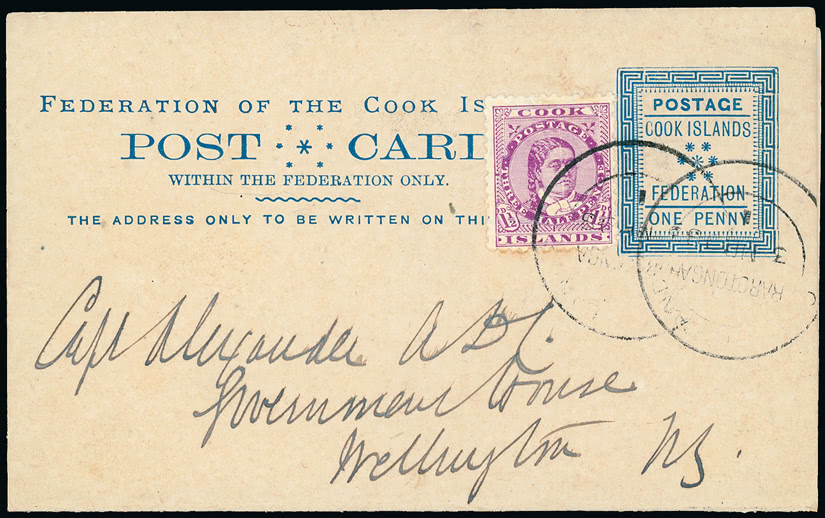 FEDERATION OF THE COOK IS
POST CARD
WITHIN THE FEDERATION ONLY.
THE ADDRESS ONLY TO BE WRITTEN ON THI
COOK
POSTAGE
ISLANDS
POSTAGE
COOK ISLANDS
FEDERATION
ONE PENNY
RAROTONGA
Capt Alexander A D C.
Government House
Wellington NZ.